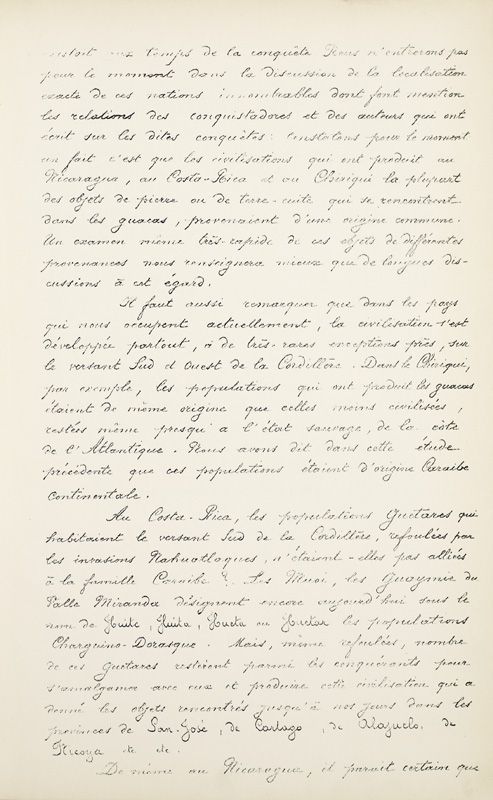 existait aux temps de la conquête Nous n'entrerons pas
pour le moment dans la discussion de la localisation
exacte de ces nations innombrables dont font mention
les relations des conquistadores et des auteurs qui ont
écrit sur les dites conquêtes: Constatons pour le moment
un fait c'est que les civilisations qui ont produit au
Nicaragua, au Costa-Rica et au Chiriqui la plupart
des objets de pierre ou de terre-cuite qui se rencontrent
dans les guacas, provenaient d'une origine commune.
Un examen même très-rapide de ces objets de différentes
provenances nous renseignera mieux que de longues dis-
cussions à cet égard.
Il faut aussi remarquer que dans les pays
qui nous occupent actuellement, la civilisation s'est
développée partout, à de très-rares exceptions près, sur
le versant Sud et Ouest de la Cordillère. Dans le Chiriqui,
par exemple, les populations qui ont produit les guacas
étaient de même origine que celles moins civilisées,
restées même presqu'a l'état sauvage, de la côte
de l'Atlantique. Nous avons dit dans cette étude
précédente que ces populations étaient d'origine Caraibe
continentale.
Au Costa-Rica, les populations Guetares qui
habitaient le versant Sud de la Cordillère, refoulées par
les invasions Nahuatlaques, n'étaient-elles pas alliées
à la famille Caraibe? Les Muoi, les Guaymie du
Valle Miranda désignent encore aujourd'hui sous le
nom de Huite, Huita, Hueta ou Huetar les populations
Changuina-Dorasque. Mais, même refoulées, nombre
de ces Guetares restèrent parmi les conquérants pour
s'amalgamer avec eux et produire cette civilisation qui a
donné les objets rencontrés jusqu'à nos jours dans les
provinces de San-José, de Cartago, de Alajuela, de
Nicoya etc etc.
De même au Nicaragua, il parait certain que